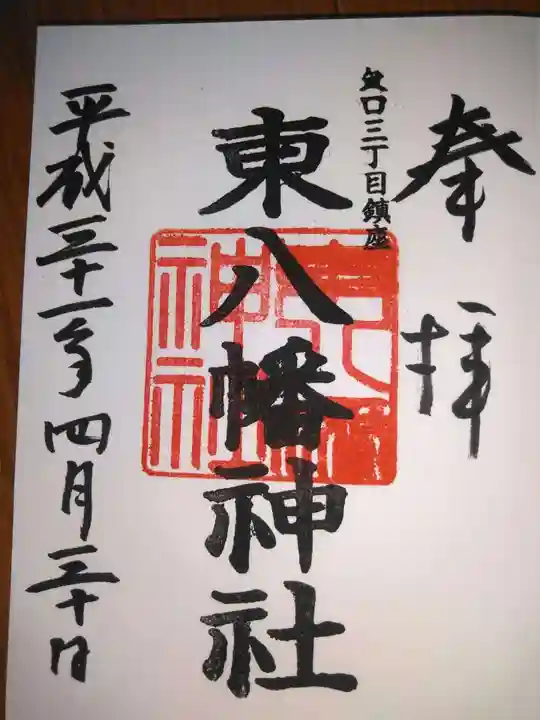 奉拝
矢口三丁目鎮座
東八幡神社
平成三十一年四月三十日